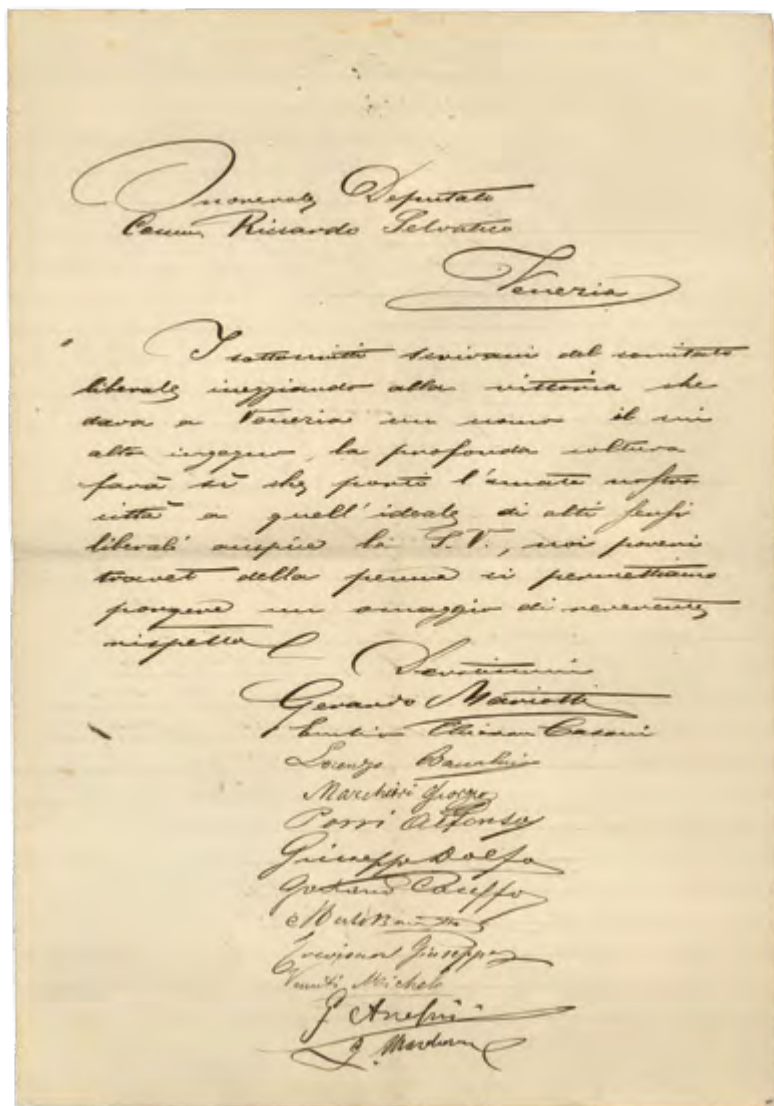 Onorevole Deputato
Comm. Riccardo Selvatico
Venezia
I sottoscritti scrivani del comitato
liberale inneggiando alla vittoria che
dava a Venezia un uomo il cui
alto ingegno, la profonda coltura
farà sì che porti l'amata nostra
città a quell'ideale di alti sensi
liberali auspice la S. V., noi poveri
travet della penna ci permettiamo
porgere un omaggio di reverente
rispetto
Devotissimi
Gerardo Mariotti
Casani
Lorenzo
Marchiori Giorgio
Porri Alfonso
Giuseppe Dolfo
Gaetano
Trevisan Giuseppe
Michele
G.
G.